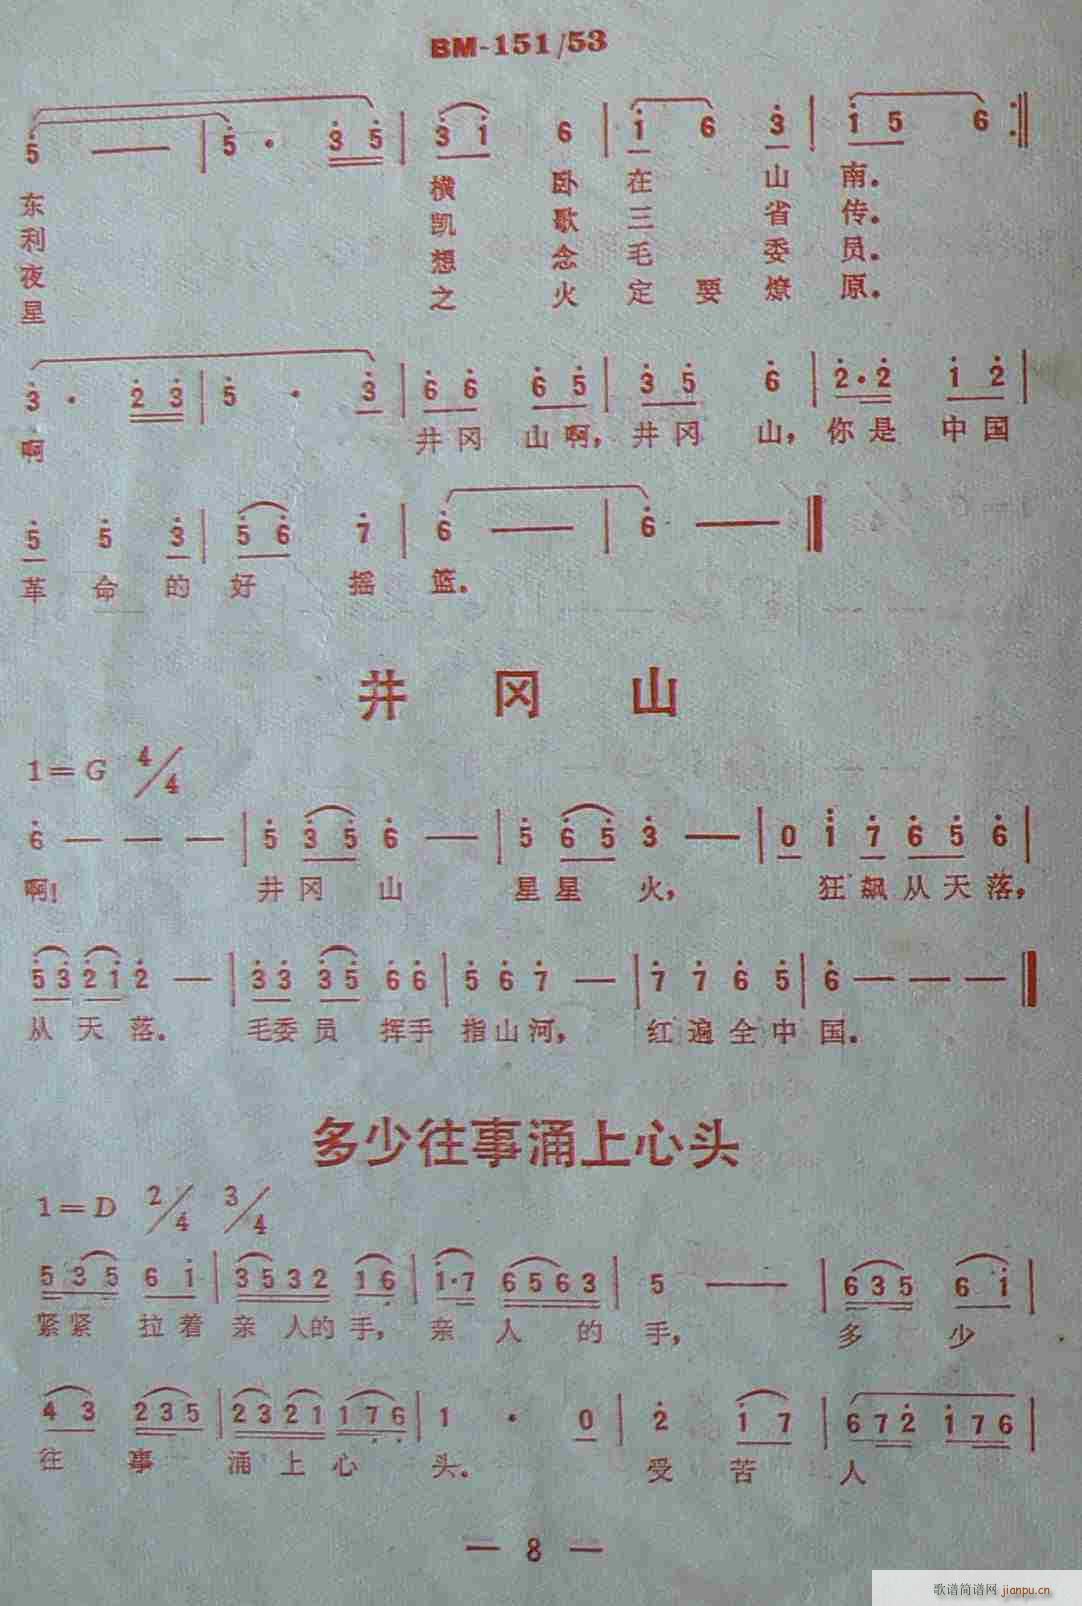 BM-151/53
5 — 5 · 3 5 | 3 1 6 | 1 6 3 | 1 5 6 :‖
东 横 卧 在 山 南。
利 凯 歌 三 省 传。
夜 想 念 毛 委 员。
星 之 火 定 要 燎 原。
3 · 2 3 | 5 · 3 | 6 6 6 5 | 3 5 6 | 2·2 1 2 |
啊 井 冈 山 啊, 井 冈 山, 你 是 中 国
5 5 3 | 5 6 7 | 6 — | 6 — ‖
革 命 的 好 摇 篮。
井 冈 山
1=G 4/4
6 — — — | 5 3 5 6 — | 5 6 5 3 — | 0 1 7 6 5 6 |
啊! 井 冈 山 星 星 火, 狂 飙 从 天 落,
5 3 2 1 2 — | 3 3 3 5 6 6 | 5 6 7 — | 7 7 6 5 | 6 — — — ‖
从 天 落。 毛 委 员 挥 手 指 山 河, 红 遍 全 中 国。
多少往事涌上心头
1=D 2/4 3/4
5 3 5 6 1 | 3 5 3 2 1 6 | 1·7 6 5 6 3 | 5 — | 6 3 5 6 1 |
紧 紧 拉 着 亲 人 的 手, 亲 人 的 手, 多 少
4 3 2 3 5 | 2 3 2 1 1 7 6 | 1 · 0 | 2 1 7 | 6 7 2 1 7 6 |
往 事 涌 上 心 头。 受 苦 人
— 8 —
歌谱简谱网 jianpu.cn